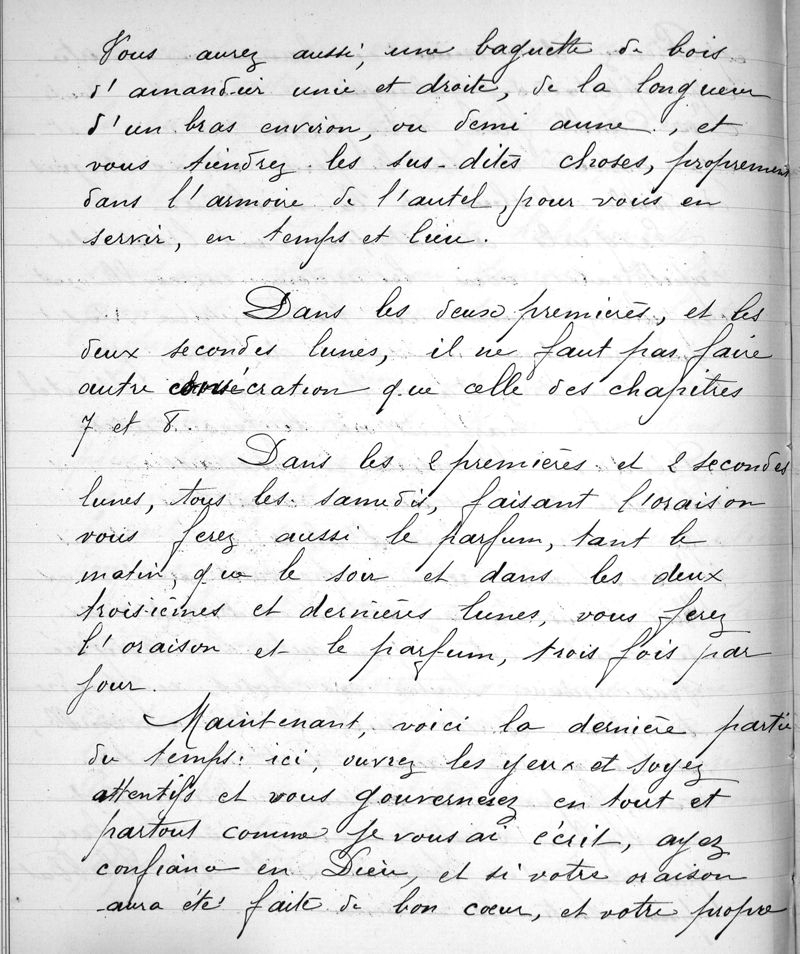 Vous aurez aussi, une baguette de bois
d'amandier unie et droite, de la longueur
d'un bras environ, ou demi aune, et
vous tiendrez les sus-dites choses, proprement
dans l'armoire de l'autel, pour vous en
servir, en temps et lieu.
Dans les deux premières, et les
deux secondes lunes, il ne faut pas faire
autre consécration que celle des chapitres
7 et 8.
Dans les 2 premières et 2 secondes
lunes, tous les samedis, faisant l'oraison
vous ferez aussi le parfum, tant le
matin, que le soir et dans les deux
troisièmes et dernières lunes, vous ferez
l'oraison et le parfum, trois fois par
jour.
Maintenant, voici la dernière partie
du temps: ici, ouvrez les yeux et soyez
attentifs et vous gouvernerez en tout et
partout comme je vous ai écrit, ayez
confiance en Dieu, et si votre oraison
aura été faite de bon cœur, et votre propre